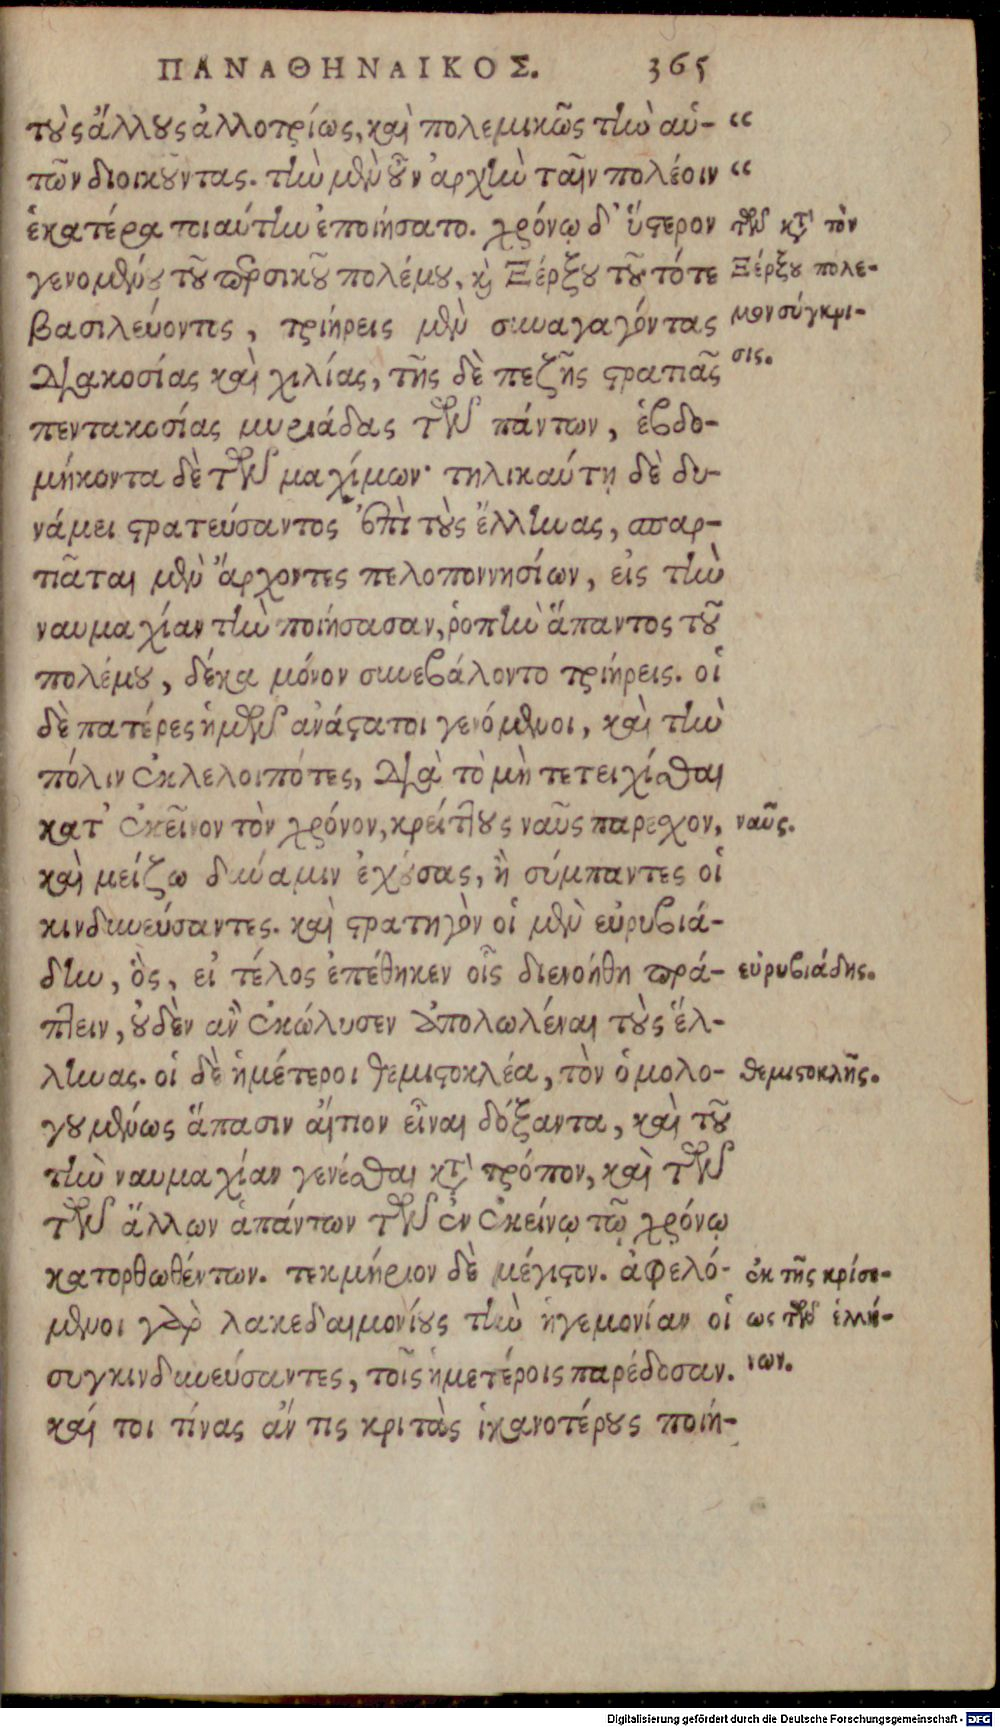 ΠΑΝΑΘΗΝΑΙΚΟΣ. 365
τοὺς ἄλλους ἀλλοτρίως, καὶ πολεμικῶς τὴν αὑ- “
τῶν διοικοῦντας. τὴν μὲν οὖν ἀρχὴν ταῖν πολέοιν “
ἑκατέρα τοιαύτην ἐποιήσατο. χρόνῳ δ' ὕστερον
γενομένου τοῦ περσικοῦ πολέμου, καὶ Ξέρξου τοῦ τότε
βασιλεύοντος, τριήρεις μὲν συναγαγόντας
διακοσίας καὶ χιλίας, τῆς δὲ πεζῆς στρατιᾶς
πεντακοσίας μυριάδας τῶν πάντων, ἑβδο-
μήκοντα δὲ τῶν μαχίμων· τηλικαύτῃ δὲ δυ-
νάμει στρατεύσαντος ἐπὶ τοὺς ἕλληνας, σπαρ-
τιᾶται μὲν ἄρχοντες πελοποννησίων, εἰς τὴν
ναυμαχίαν τὴν ποιήσασαν, ῥοπὴν ἅπαντος τοῦ
πολέμου, δέκα μόνον συνεβάλοντο τριήρεις. οἱ
δὲ πατέρες ἡμῶν ἀνάστατοι γενόμενοι, καὶ τὴν
πόλιν ἐκλελοιπότες, διὰ τὸ μὴ τετειχίσθαι
κατ' ἐκεῖνον τὸν χρόνον, κρείττους ναῦς παρέσχον,
καὶ μείζω δύναμιν ἐχούσας, ἢ σύμπαντες οἱ
κινδυνεύσαντες. καὶ στρατηγὸν οἱ μὲν εὐρυβιά-
δην, ὃς, εἰ τέλος ἐπέθηκεν οἷς διενοήθη πρά-
ττειν, οὐδὲν ἂν ἐκώλυσεν ἀπολωλέναι τοὺς ἕλ-
ληνας. οἱ δὲ ἡμέτεροι θεμιστοκλέα, τὸν ὁμολο-
γουμένως ἅπασιν αἴτιον εἶναι δόξαντα, καὶ τοῦ
τὴν ναυμαχίαν γενέσθαι κατὰ τρόπον, καὶ τῶν
τῶν ἄλλων ἁπάντων τῶν ἐν ἐκείνῳ τῷ χρόνῳ
κατορθωθέντων. τεκμήριον δὲ μέγιστον. ἀφελό-
μενοι γὰρ λακεδαιμονίους τὴν ἡγεμονίαν οἱ
συγκινδυνεύσαντες, τοῖς ἡμετέροις παρέδοσαν.
καί τοι τίνας ἄν τις κριτὰς ἱκανοτέρους ποιή-
τῶν κατὰ τὸν
Ξέρξου πολε-
μον σύγκρι-
σις.
ναῦς.
εὐρυβιάδης.
θεμιστοκλῆς.
ἐκ τῆς κρίσε-
ως τῶν ἑλλή-
νων.
Digitalisierung gefördert durch die Deutsche Forschungsgemeinschaft - DFG